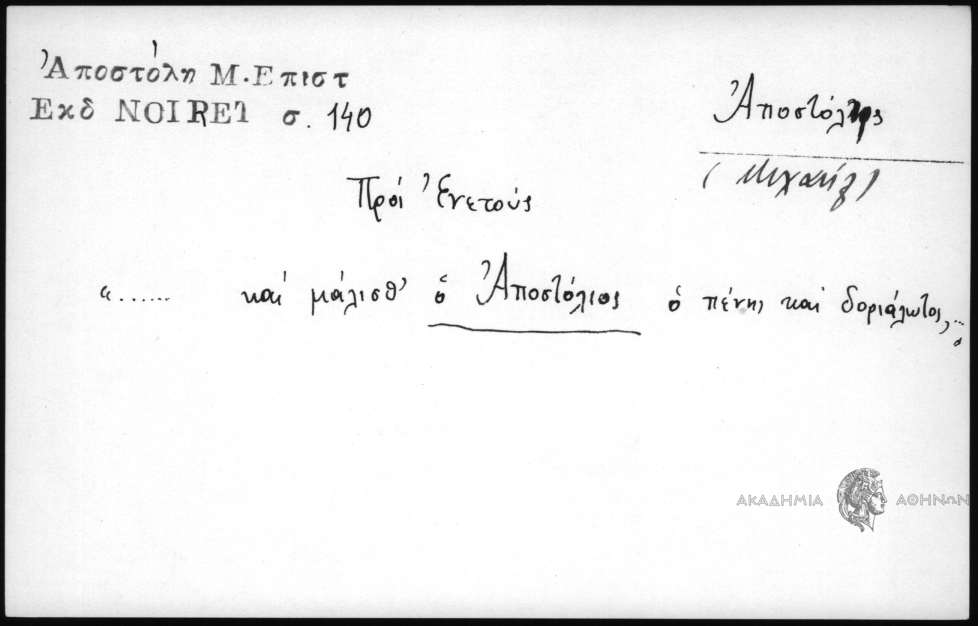 Ἀποστόλη Μ. Επιστ
Εκδ NOIRET σ. 140
Ἀποστόλης
(Μιχαήλ)
Πρός Ἑνετούς
"...... καί μάλισθ' ὁ Ἀποστόλιος ὁ πένης καί δοριάλωτος,...
ΑΚΑΔΗΜΙΑ ΑΘΗΝΩΝ